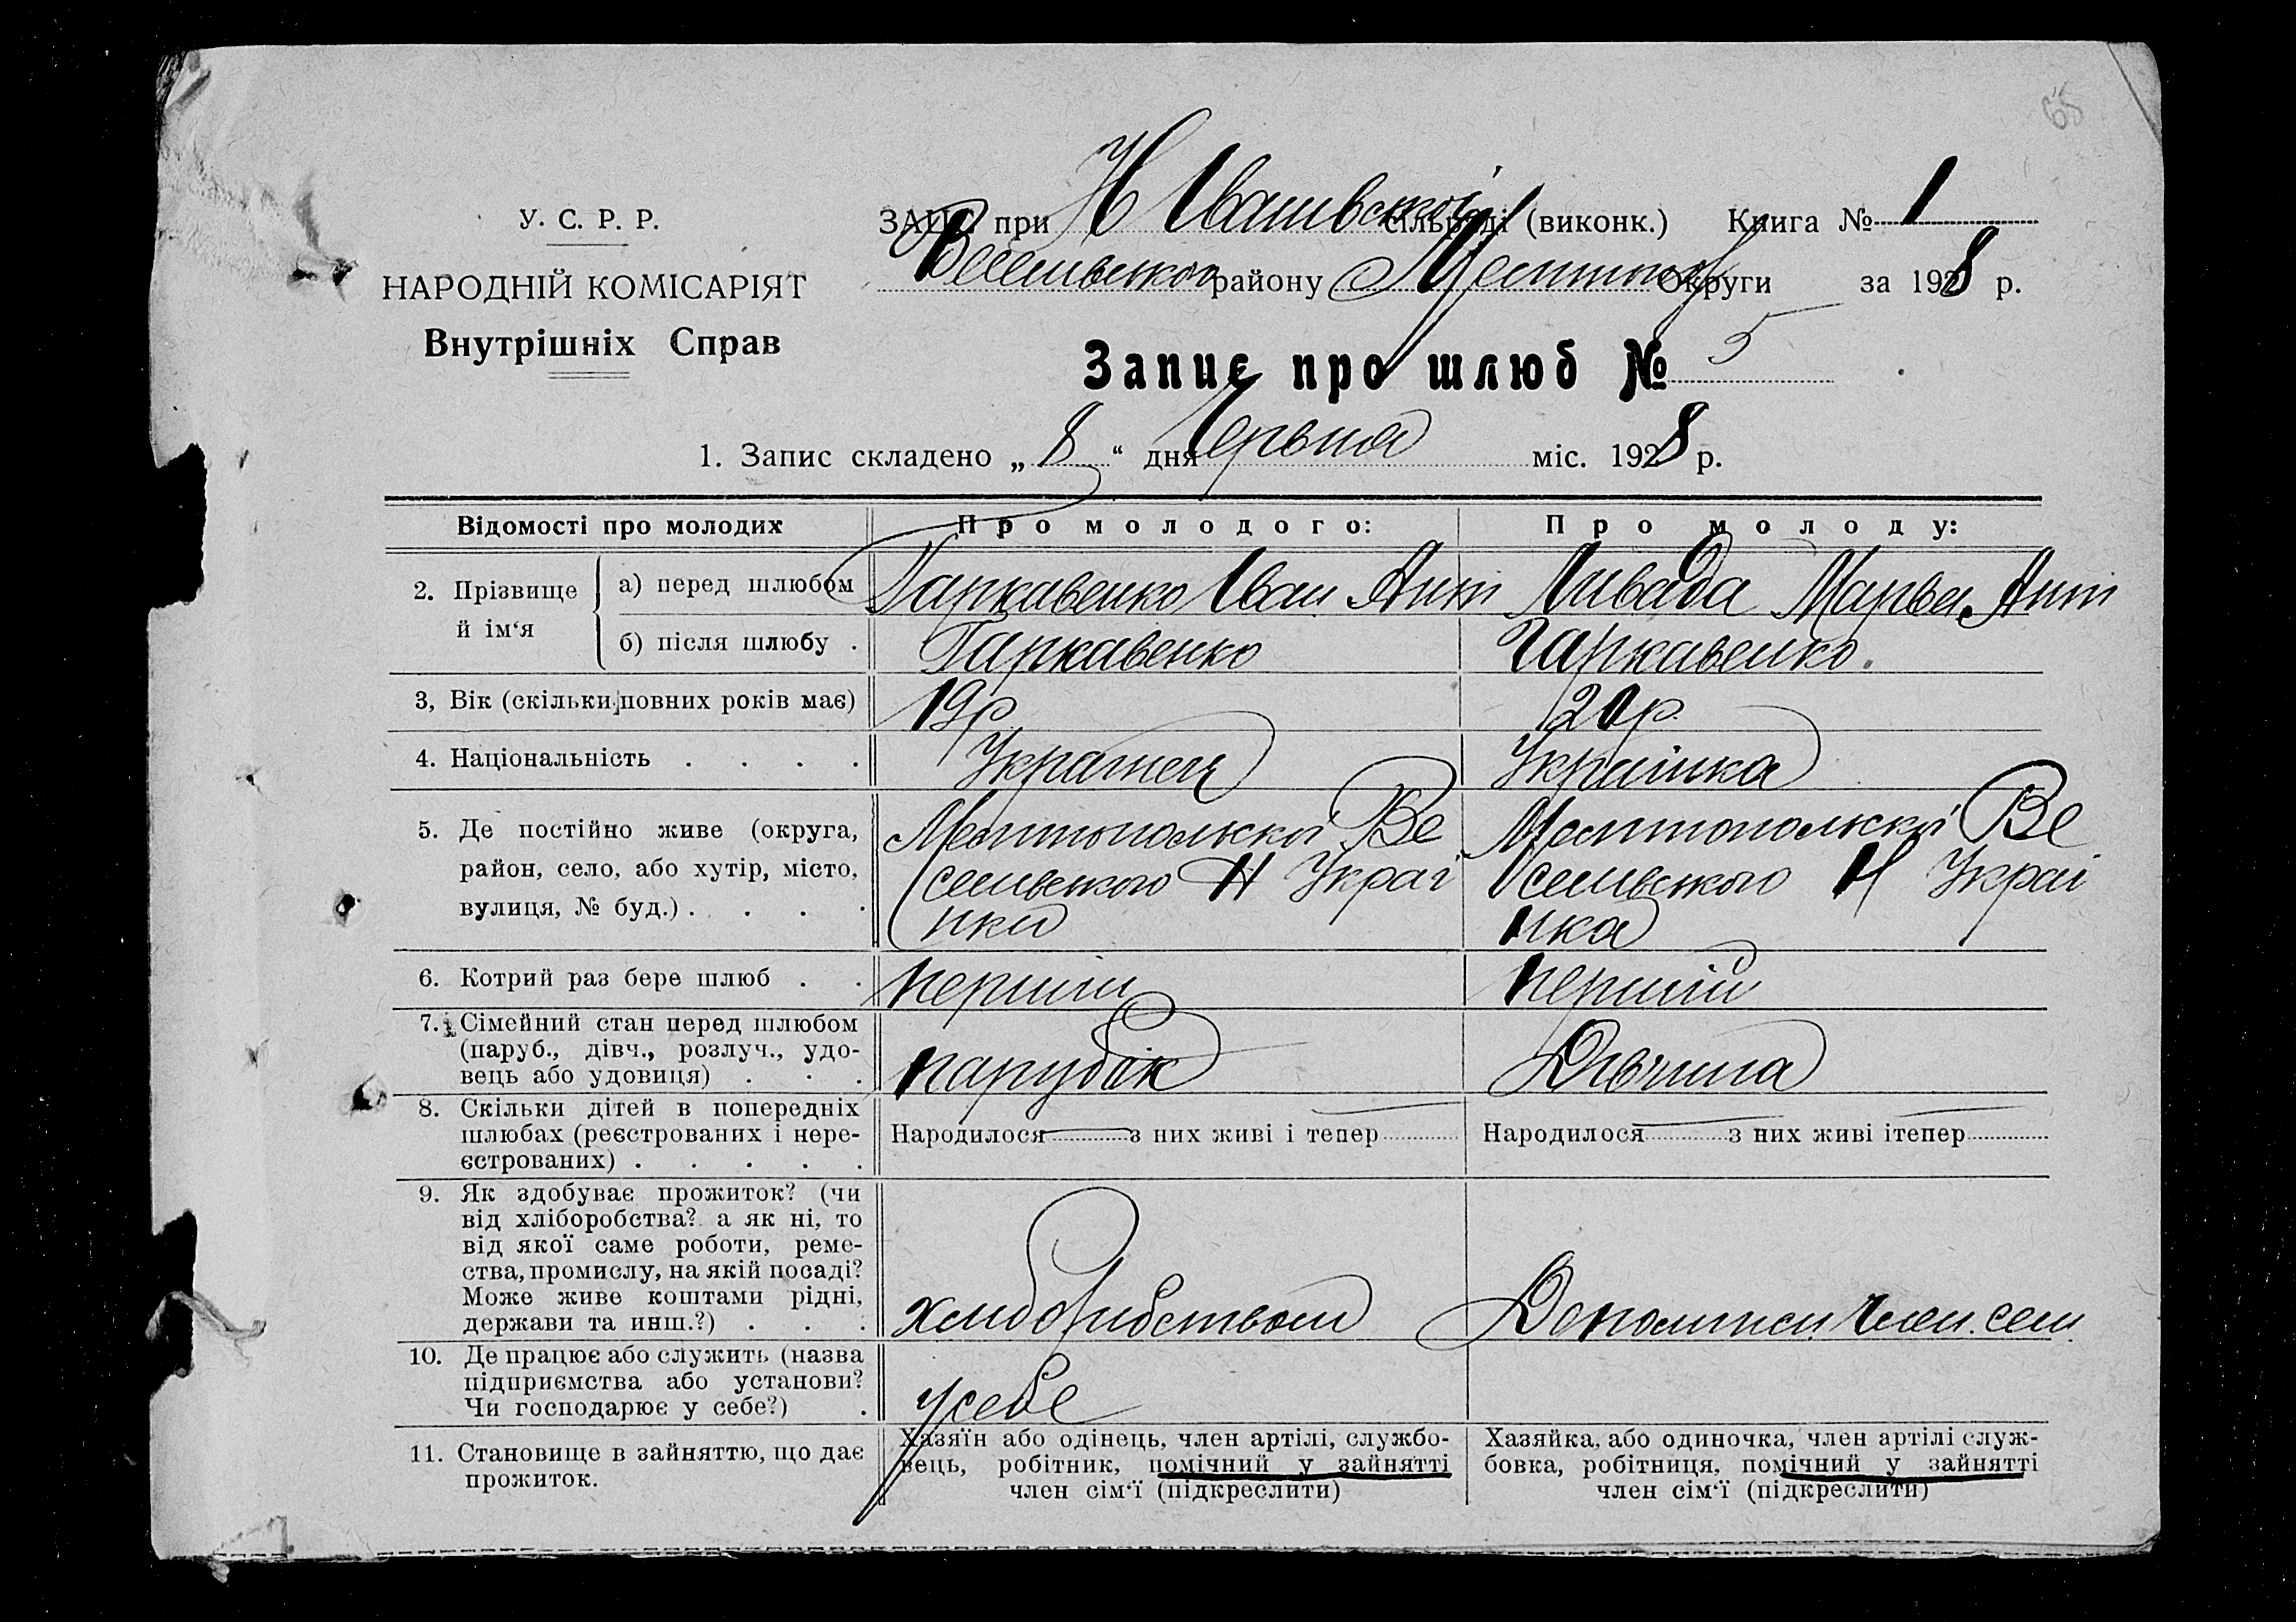 65
У. С. Р. Р.
НАРОДНІЙ КОМІСАРІЯТ
Внутрішніх Справ
ЗАЦС при Н Івашвській сільраді (виконк.) Книга № 1
Веселівського району Меліт Округи за 1928 р.
Запис про шлюб № 5
1. Запис складено „ 8 “ дня Червня міс. 1928 р.
Відомості про молодих Про молодого: Про молоду:
2. Прізвище й ім‘я
а) перед шлюбом Гаркавенко Іван Ант Ливада Марья Ант
б) після шлюбу . Гаркавенко Гаркавенко.
3, Вік (скільки повних років має) 19р 20р.
4. Національність . . . . Украінец Украінка
5. Де постійно живе (округа, Мелітопольскоі Ве Мелітопольскоі Ве
район, село, або хутір, місто, селівського Н Украі селівського Н Украі
вулиця, № буд.) . . . . нки нка
6. Котрий раз бере шлюб . . перший перший
7. Сімейний стан перед шлюбом
(паруб., дівч., розлуч., удо-
вець або удовиця) . . . парубок Дівчина
8. Скільки дітей в попередніх
шлюбах (реєстрованих і нере- Народилося — з них живі і тепер — Народилося — з них живі ітепер —
єстрованих) . . . . .
9. Як здобуває прожиток? (чи
від хліборобства? а як ні, то
від якої саме роботи, реме-
ства, промислу, на якій посаді?
Може живе коштами рідні,
держави та инш.?) . . . хліборибством Допоміжн член. сем.
10. Де працює або служить (назва
підприємства або установи?
Чи господарює у себе?) . усебе
11. Становище в зайняттю, що дає
прожиток.
Хазяїн або одінець, член артілі, службо-
вець, робітник, помічний у зайнятті
член сім‘ї (підкреслити)
Хазяйка, або одиночка, член артілі служ-
бовка, робітниця, помічний у зайнятті
член сім‘ї (підкреслити)